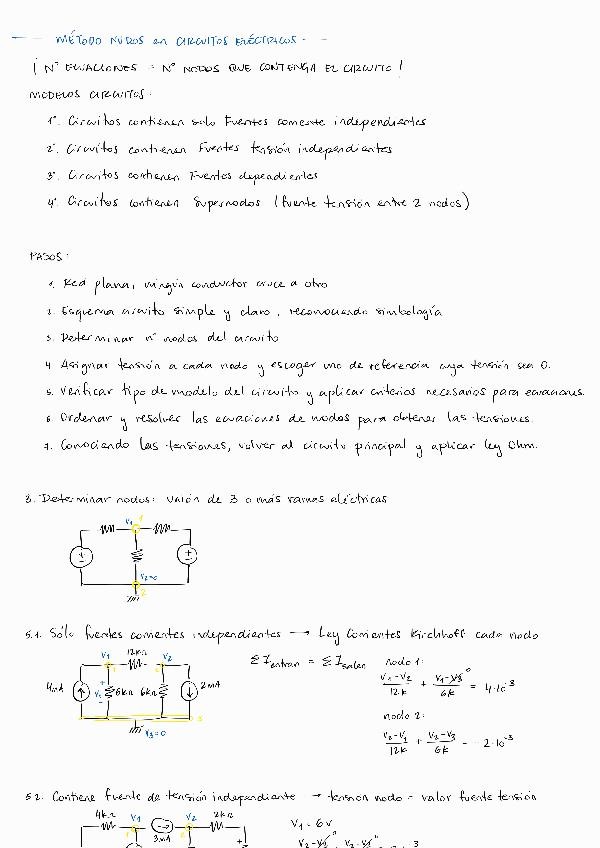 MÉTODO NUDOS en CIRCUITOS ELÉCTRICOS.
¡Nº ECUACIONES = Nº NODOS QUE CONTENGA EL CIRCUITO!
MODELOS CIRCUITOS:
1º. Circuitos contienen solo Fuentes corriente independientes
2º. Circuitos contienen Fuentes tensión independientes
3º. Circuitos contienen Fuentes dependientes
4º. Circuitos contienen Supernodos (fuente tensión entre 2 nodos)
PASOS:
1. Red plana, ningún conductor cruce a otro
2. Esquema circuito simple y claro, reconociendo simbología
3. Determinar nº nodos del circuito
4. Asignar tensión a cada nodo y escoger uno de referencia cuya tensión sea 0.
5. Verificar tipo de modelo del circuito y aplicar criterios necesarios para ecuaciones.
6. Ordenar y resolver las ecuaciones de nodos para obtener las tensiones.
7. Conociendo las tensiones, volver al circuito principal y aplicar ley Ohm.
3. Determinar nodos: unión de 3 o más ramas eléctricas
V1 1
+ − + −
V2=0 2
5.1. Sólo fuentes corrientes independientes → Ley Corrientes Kirchhoff cada nodo
V1 12kΩ V2
4mA + V1 − 6kΩ 6kΩ 2mA
3
V3=0
ΣIentran = ΣIsalen
nodo 1:
(V1−V2)/12k + (V1−V3)/6k = 4·10⁻³
nodo 2:
(V2−V1)/12k + (V2−V3)/6k = −2·10⁻³
5.2. Contiene fuente de tensión independiente → tensión nodo = valor fuente tensión
4kΩ V1 V2 2kΩ
3mA
V1 = 6V